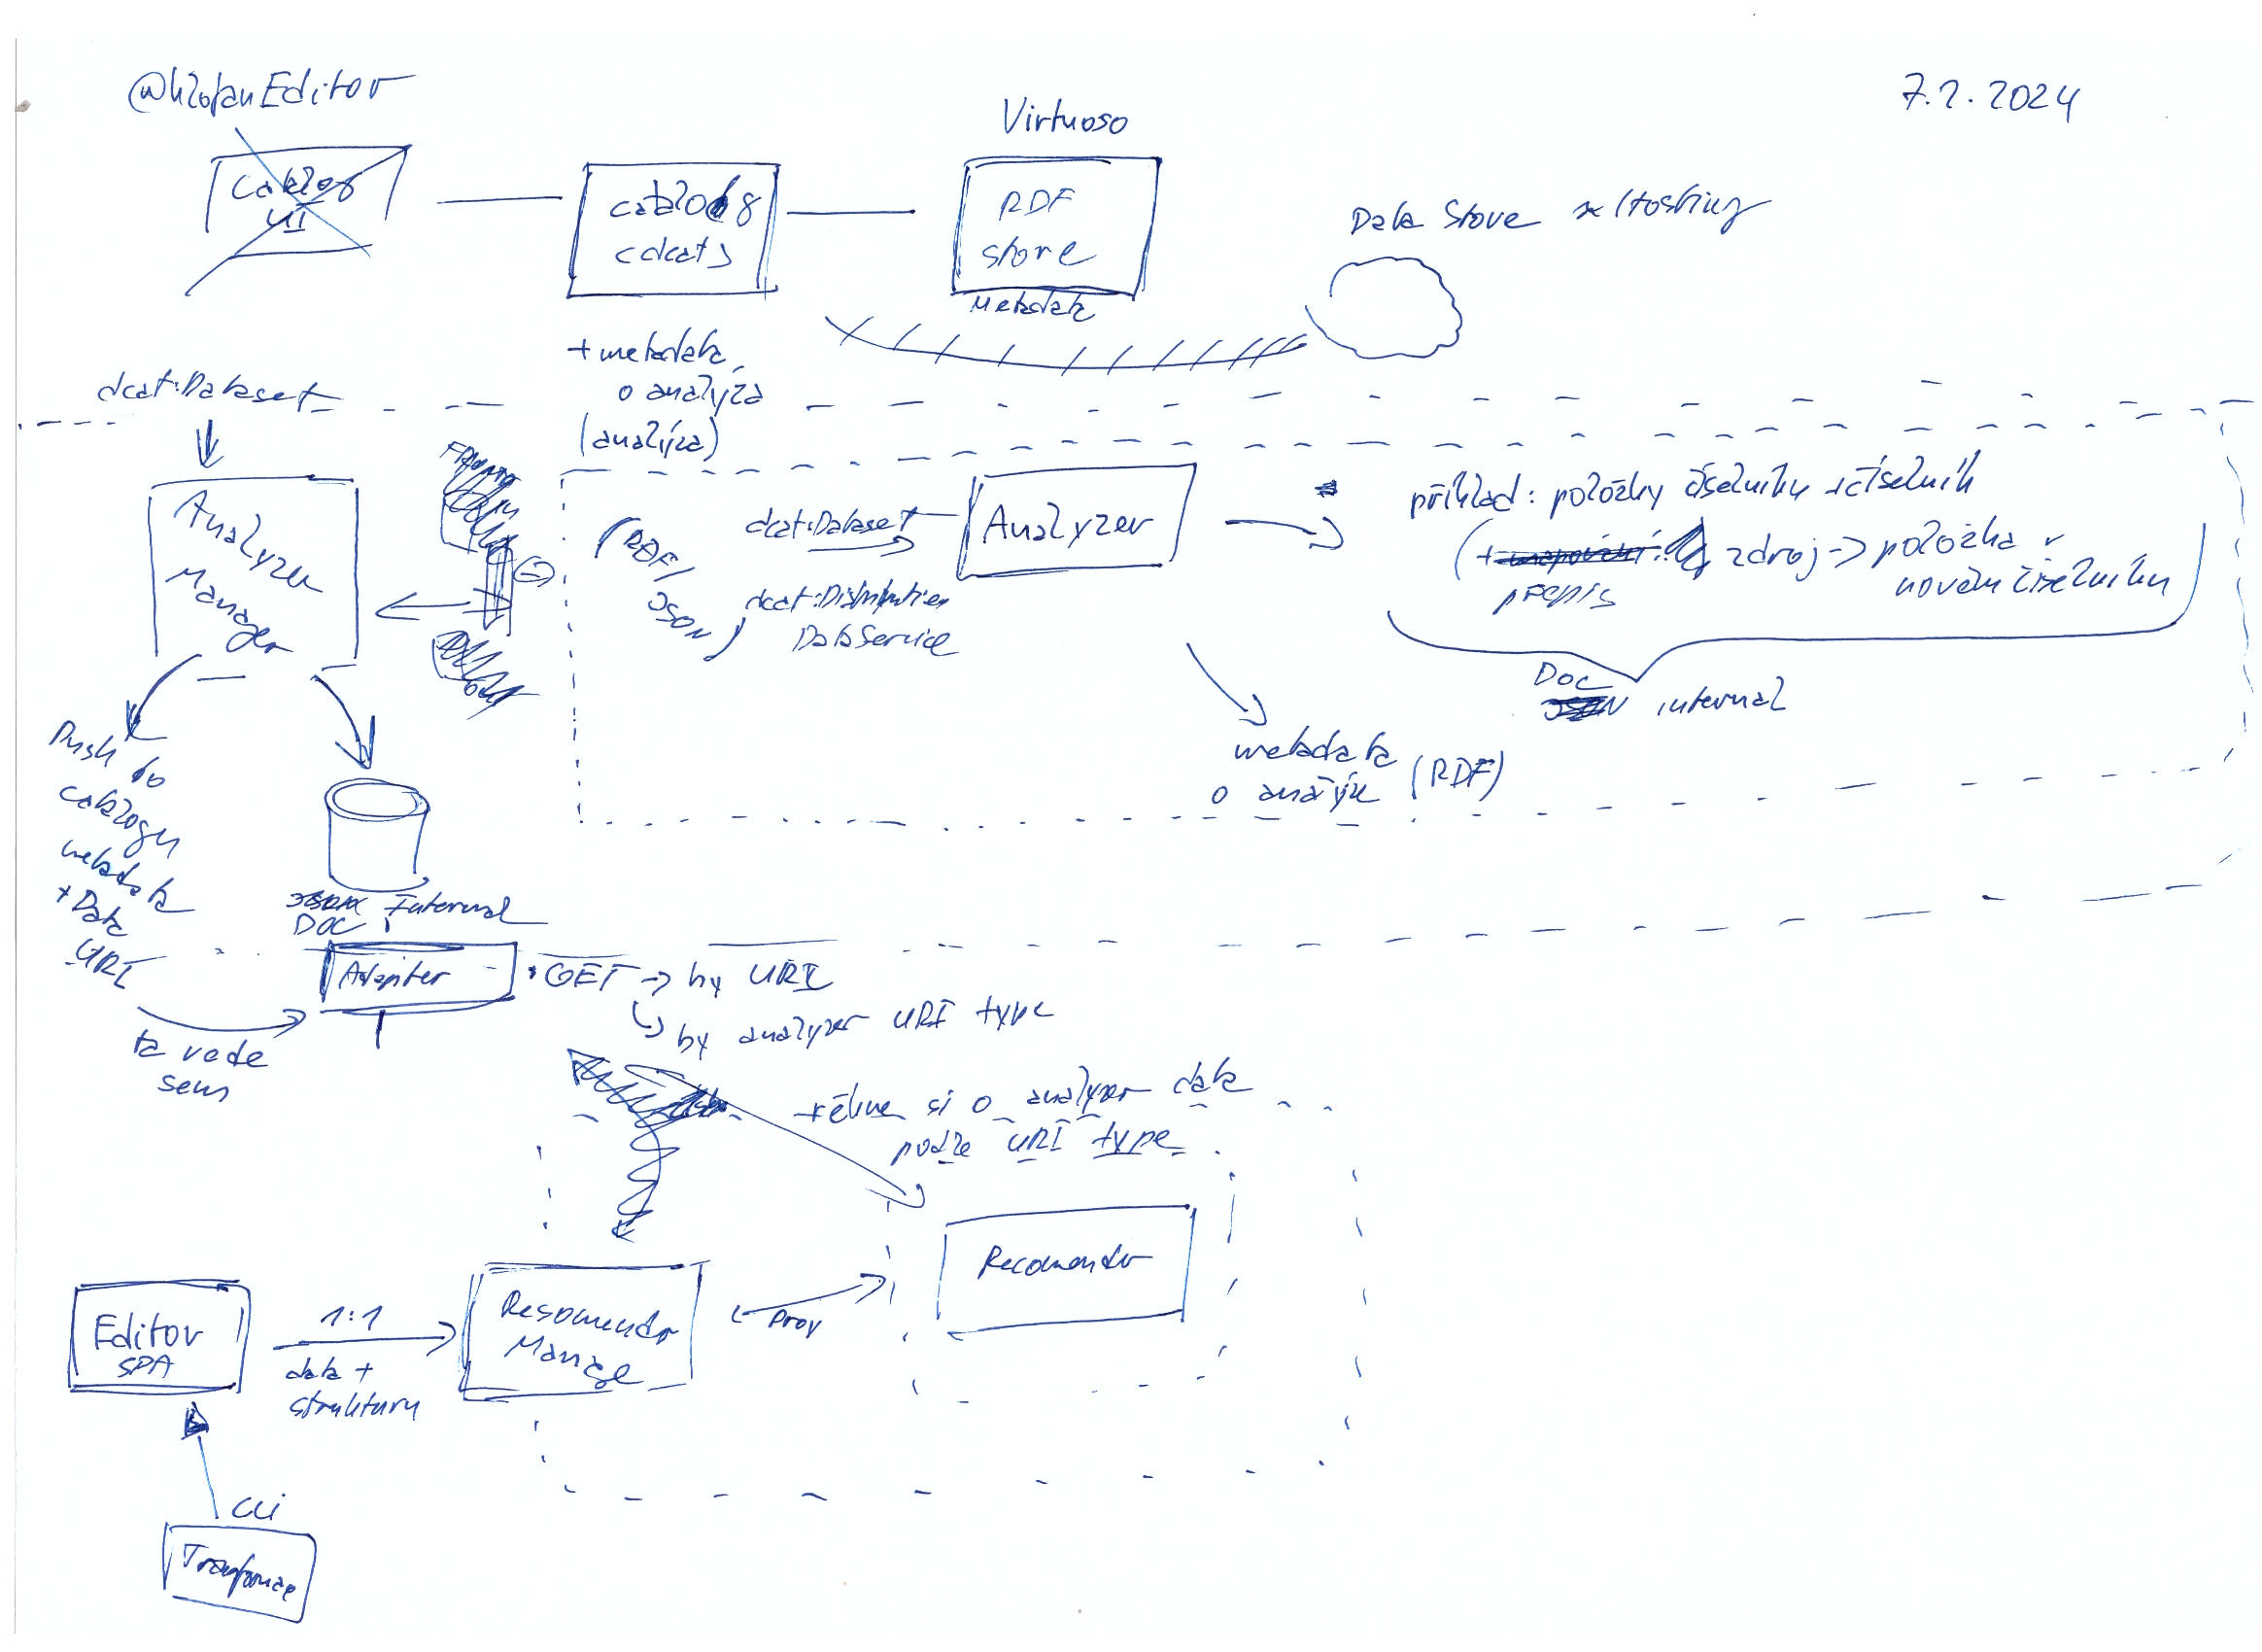 7.2.2024
Virtuoso
Catalog
UI
catalog
(dcat)
RDF
store
Metadata
Data Store
+ metadata
o analýza
(analýza)
dcat:Dataset
Analyzer
Manager
(RDF/
JSON)
dcat:Dataset
dcat:Distribution
DataService
Analyzer
příklad: položky číselníku
přepis
zdroj -> položka v
novém číselníku
Doc
internal
metadata
o (RDF)
Push do
catalogu
metadata
+ Data
URI
Internal
DOC
Adapter
GET -> by URI
by analyzer URI type
ta vede
sem
si o analyzer data
podle URI type
Recomendr
Editor
SPA
1:1
data +
struktury
Resomendr
Manage
Proxy
CLI